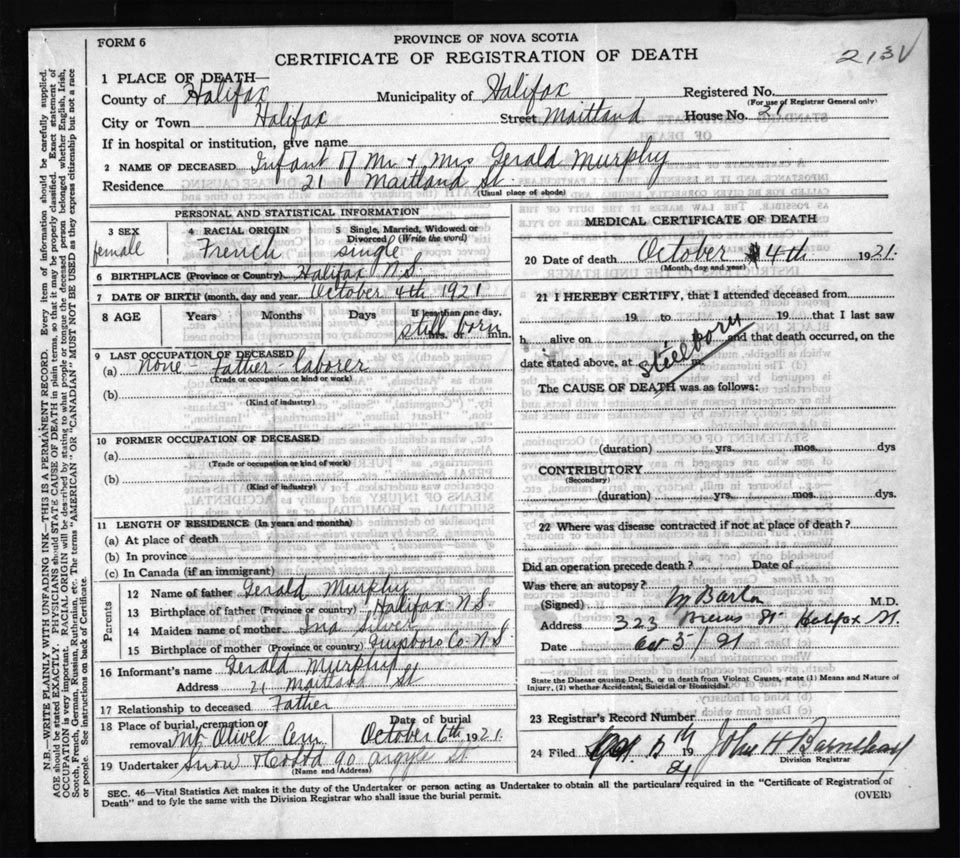 FORM 6
PROVINCE OF NOVA SCOTIA
CERTIFICATE OF REGISTRATION OF DEATH
213V
1 PLACE OF DEATH—
County of Halifax Municipality of Halifax Registered No.
(For use of Registrar General only)
City or Town Halifax Street Maitland House No. 21
If in hospital or institution, give name
2 NAME OF DECEASED Infant of Mr + Mrs Gerald Murphy
Residence 21 Maitland St.
(Usual place of abode)
PERSONAL AND STATISTICAL INFORMATION
3 SEX 4 RACIAL ORIGIN 5 Single, Married, Widowed or Divorced (Write the word)
female French single
6 BIRTHPLACE (Province or Country) Halifax N.S.
7 DATE OF BIRTH (month, day and year October 4th 1921
8 AGE Years Months Days If less than one day,
still born
hrs. or min.
9 LAST OCCUPATION OF DECEASED
(a) none - Father - laborer
(Trade or occupation or kind of work)
(b)
(Kind of industry)
10 FORMER OCCUPATION OF DECEASED
(a)
(Trade or occupation or kind of work)
(b)
(Kind of industry)
11 LENGTH OF RESIDENCE (In years and months)
(a) At place of death
(b) In province
(c) In Canada (if an immigrant)
Parents
12 Name of father Gerald Murphy
13 Birthplace of father (Province or country) Halifax N.S
14 Maiden name of mother Silver
15 Birthplace of mother (Province or country) Co. N.S
16 Informant's name Gerald Murphy
Address 21 Maitland St
17 Relationship to deceased Father
18 Place of burial, cremation or removal Mt Olivet Cem Date of burial October 6th 1921.
19 Undertaker Snow 90 Argyle St
(Name and Address)
MEDICAL CERTIFICATE OF DEATH
20 Date of death October 4th 1921.
(Month, day and year)
21 I HEREBY CERTIFY, that I attended deceased from
19 to 19 that I last saw
h alive on and that death occurred, on the
date stated above, at m.
stillborn
The CAUSE OF DEATH was as follows:
(duration) yrs. mos. dys
CONTRIBUTORY
(Secondary)
(duration) yrs. mos. dys.
22 Where was disease contracted if not at place of death?
Did an operation precede death? Date of
Was there an autopsy?
(Signed) M.D.
Address 323 St. Halifax
Date Oct 5/21
State the Disease causing Death, or in death from Violent Causes, state (1) Means and Nature of
Injury, (2) whether Accidental, Suicidal or Homicidal.
23 Registrar's Record Number
24 Filed 19 John H
Division Registrar
SEC. 46—Vital Statistics Act makes it the duty of the Undertaker or person acting as Undertaker to obtain all the particulars required in the "Certificate of Registration of
Death" and to fyle the same with the Division Registrar who shall issue the burial permit.
(OVER)
N.B.—WRITE PLAINLY WITH UNFADING INK—THIS IS A PERMANENT RECORD. Every item of information should be carefully supplied.
AGE should be stated EXACTLY. PHYSICIANS should STATE CAUSE OF DEATH in plain terms, so that it may be properly classified. Exact statement of
OCCUPATION is very important. RACIAL ORIGIN will be described by stating to what people or tongue the deceased person belonged whether English, Irish,
Scotch, French, German, Russian, Ruthenian, etc. The terms "AMERICAN" OR "CANADIAN" MUST NOT BE USED as they express citizenship but not a race
or people. See instructions on back of Certificate.